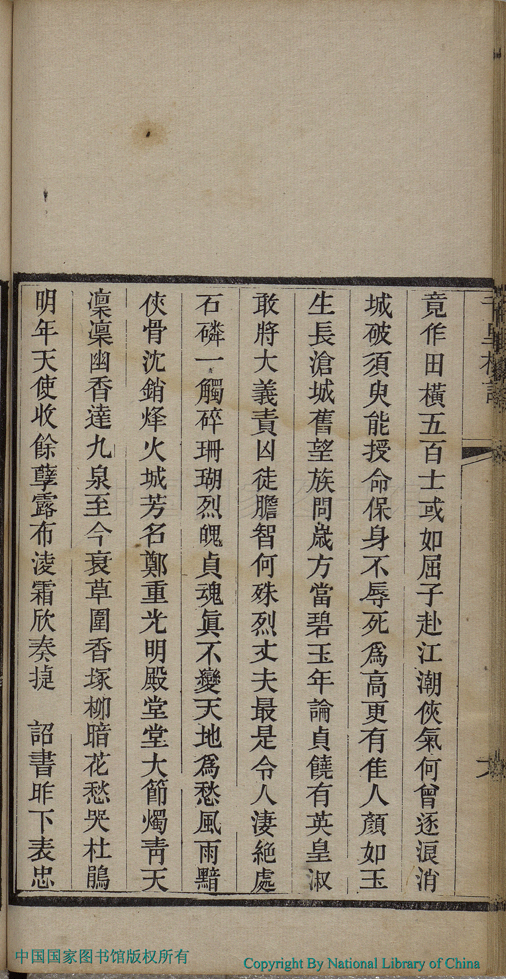 竟作田橫五百士或如屈子赴江潮俠氣何曾逐浪消
城破須臾能授命保身不辱死爲高更有佳人顏如玉
生長滄城舊望族問歲方當碧玉年論貞饒有英皇淑
敢將大義責凶徒膽智何殊烈丈夫最是令人淒絕處
石磷一觸碎珊瑚烈魄貞魂眞不變天地爲愁風雨黯
俠骨沈銷烽火城芳名鄭重光明殿堂堂大節燭靑天
凛凛幽香達九泉至今衰草圍香塚柳暗花愁哭杜鵑
明年天使收餘孽露布淩霜欣奏捷 詔書昨下表忠
中国国家图书馆版权所有
Copyright By National Library of China